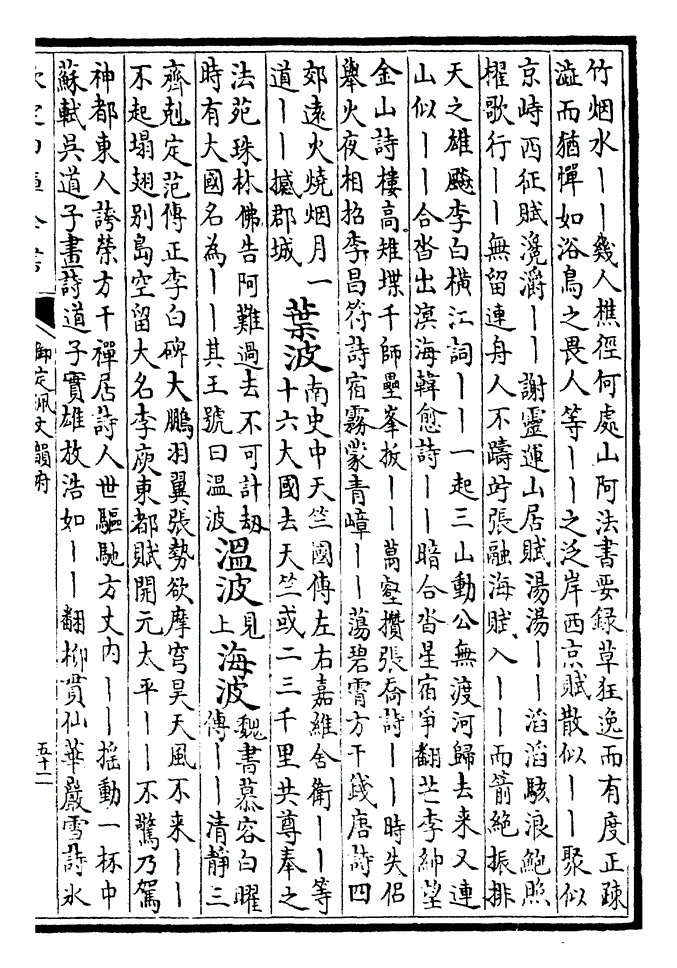 竹烟水丨丨幾人樵徑何處山阿法書要録草狂逸而有度正疎
澁而猶憚如浴鳥之畏人等丨丨之泛岸西京賦散似丨丨聚似
京峙西征賦瀺灂丨丨謝靈運山居賦湯湯丨丨滔滔駭浪鮑照
櫂歌行丨丨無留連舟人不躊竚張融海賦入丨丨而箭絶振排
天之雄飈李白横江詞丨丨一起三山動公無渡河歸去来又連
山似丨丨合沓出溟海韓愈詩丨丨暗合沓星宿爭翻芒李紳望
金山詩樓高雉堞千師壘峯拔丨丨萬壑攢張喬詩丨丨時失侣
舉火夜相招李昌符詩宿霧蒙青嶂丨丨蕩碧霄方干錢唐詩四
郊遠火燒烟月一
道丨丨撼郡城
葉波
南史中天竺國傳左右嘉維舍衛丨丨等
十六大國去天竺或二三千里共尊奉之
法苑珠林佛告阿難過去不可計劫
時有大國名為丨丨其王號曰温波
溫波
見
上
海波
魏書慕容白曜
傳丨丨清靜三
齊剋定范傳正李白碑大鵬羽翼張勢欲摩穹昊天風不来丨丨
不起塌翅别島空留大名李庾東都賦開元太平丨丨不驚乃駕
神都東人誇榮方干禪居詩人世驅馳方丈内丨丨摇動一杯中
蘇軾吳道子畫詩道子實雄放浩如丨丨翻栁貫仙華巖雪詩氷
欽定四庫全書
御定佩文韻府
五十二